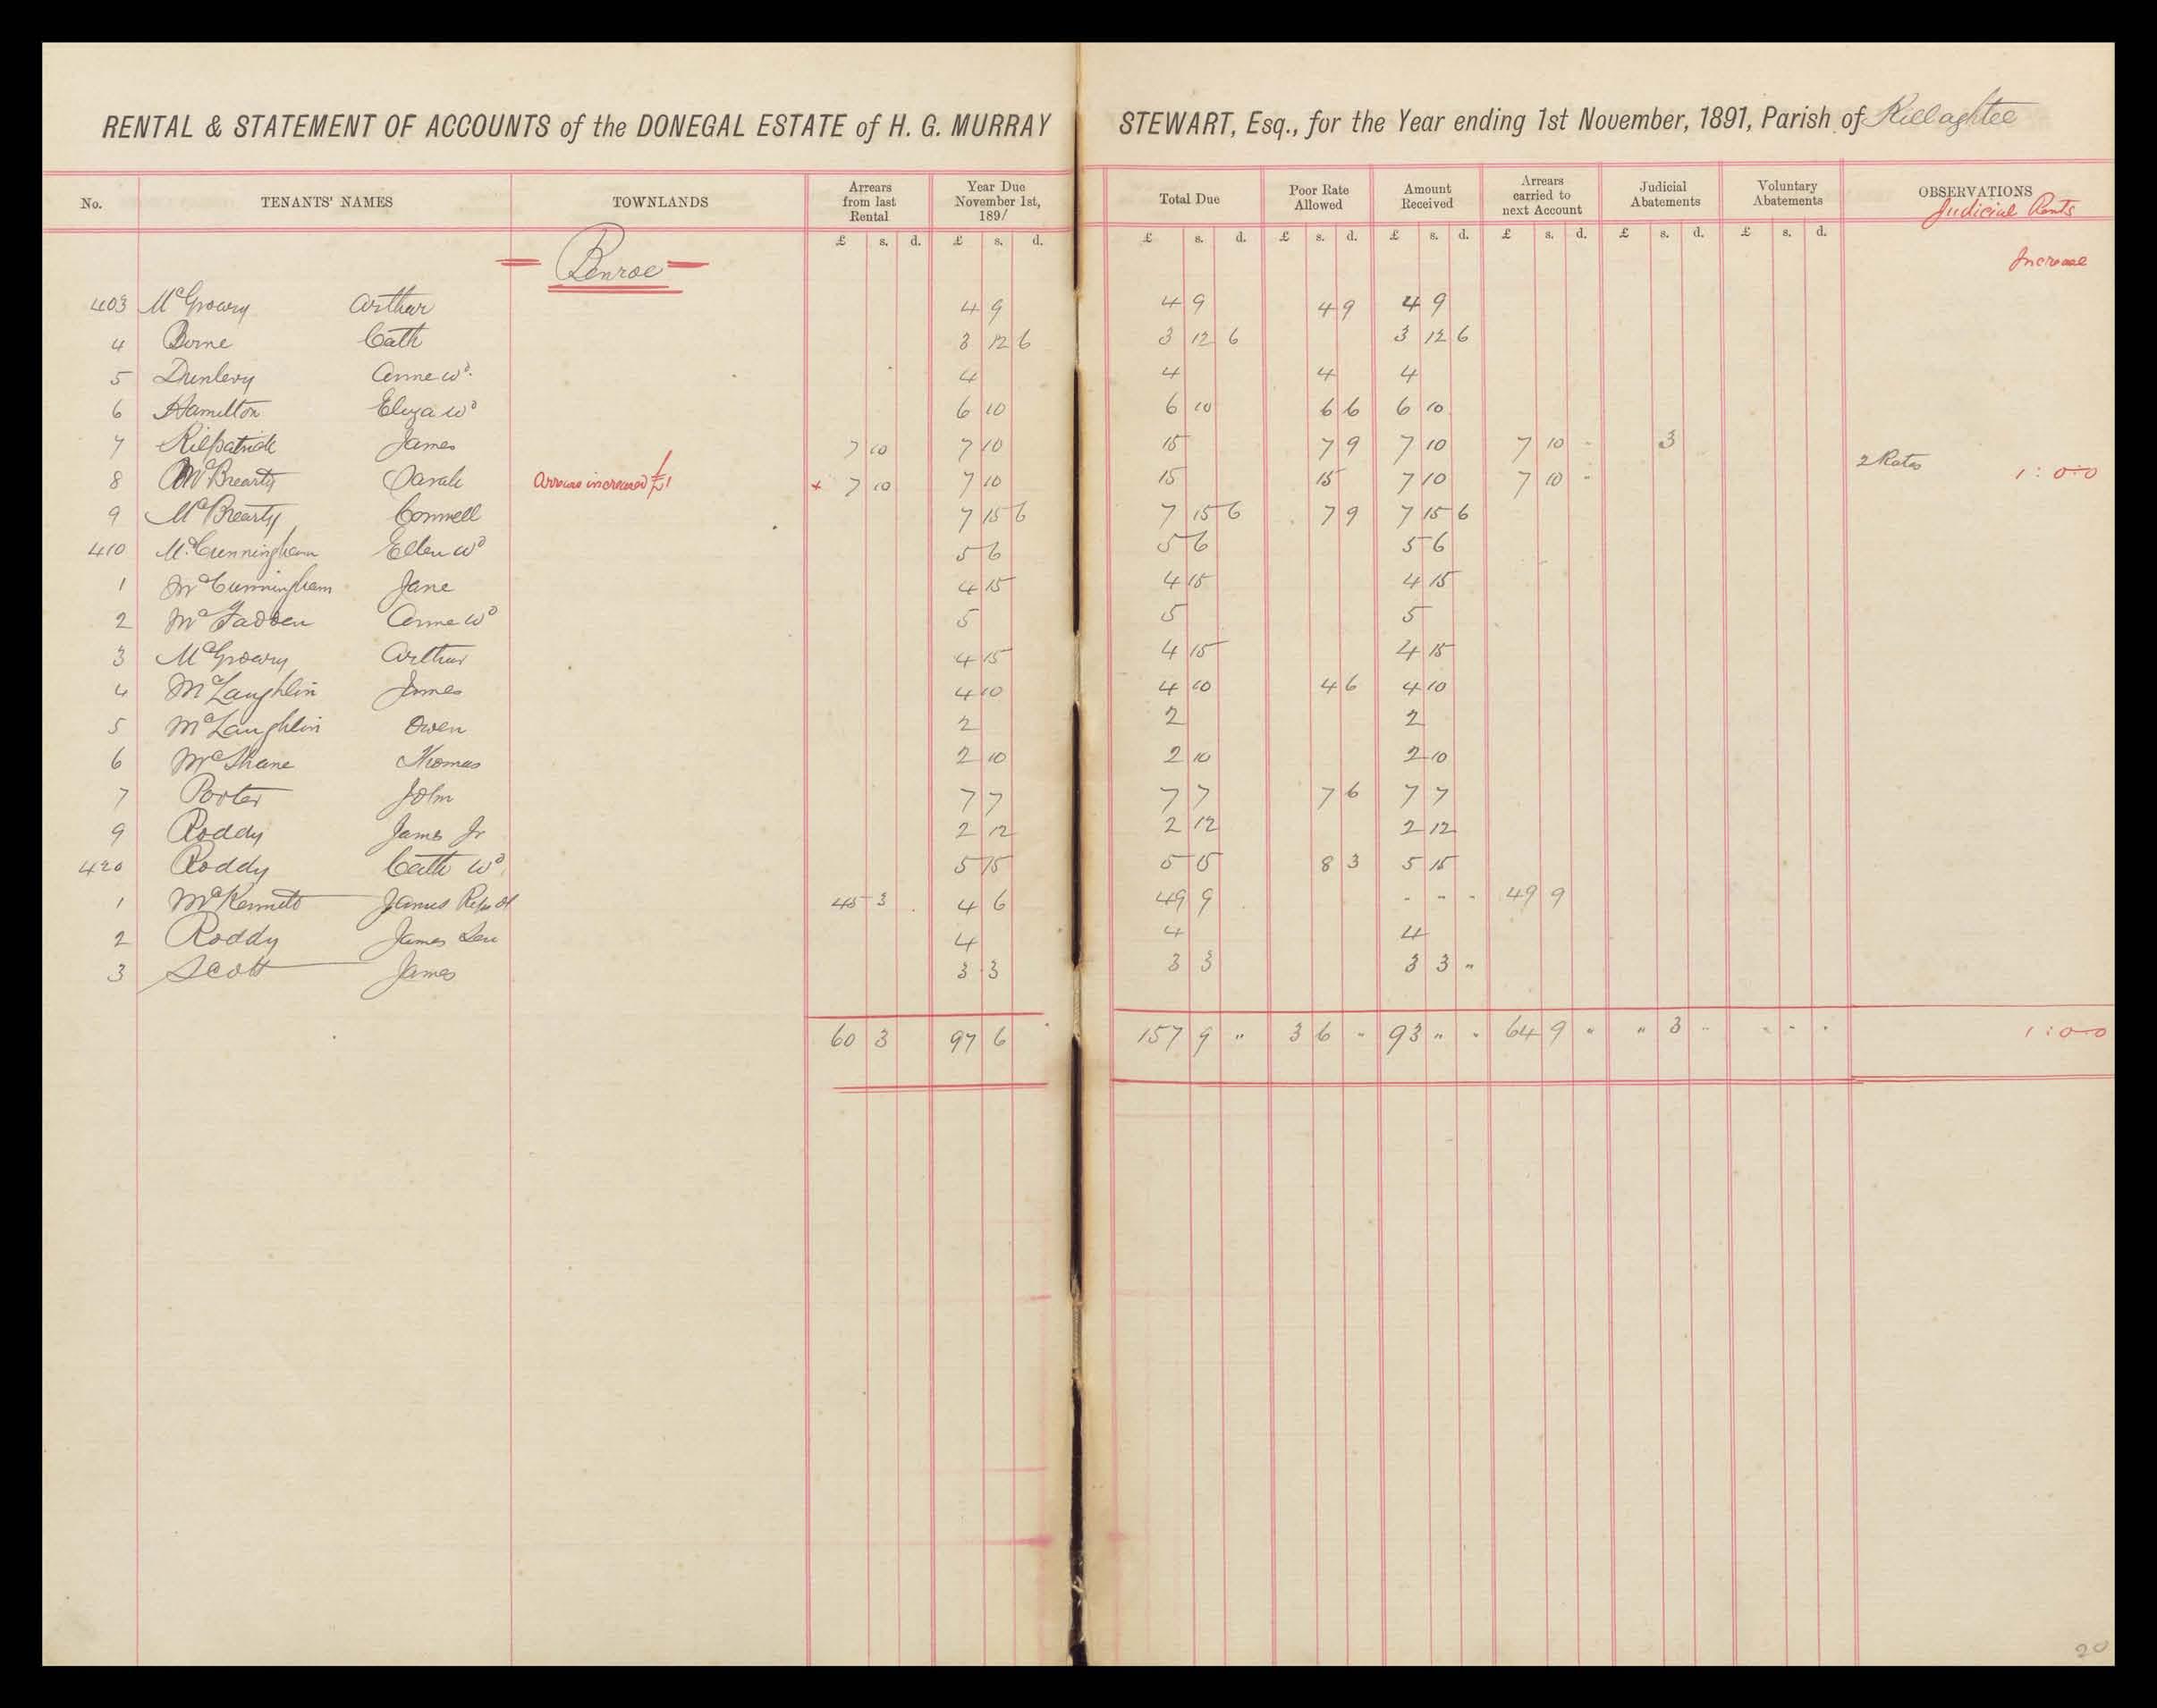 RENTAL & STATEMENT OF ACCOUNTS of the DONEGAL ESTATE of H. G. MURRAY STEWART, Esq., for the Year ending 1st November, 1891, Parish of Killaghtee
No. TENANTS' NAMES TOWNLANDS Arrears from last Rental Year Due November 1st, 1891 Total Due Poor Rate Allowed Amount Received Arrears carried to next Account Judicial Abatements Voluntary Abatements OBSERVATIONS
Judicial Rents
£ s. d. £ s. d. £ s. d. £ s. d. £ s. d. £ s. d. £ s. d. £ s. d.
Increase
Penroe
403 McGrowry Arthur 4 9 4 9 4 9 4 9
4 Borne Cath 3 12 6 3 12 6 3 12 6
5 Dunlevy Anne wd. 4 4 4 4
6 Hamilton Eliza wd 6 10 6 10 6 6 6 10
7 Kilpatrick James 7 10 7 10 15 7 9 7 10 7 10 - 3
8 McBrearty Sarah Arrears increased £1 + 7 10 7 10 15 15 7 10 7 10 - 2 Rates 1:0:0
9 McBrearty Connell 7 15 6 7 15 6 7 9 7 15 6
410 McCunningham Ellen wd 5 6 5 6 5 6
1 McCunningham Jane 4 15 4 15 4 15
2 McFadden Anne wd 5 5 5
3 McGrowry Arthur 4 15 4 15 4 15
4 McLaughlin James 4 10 4 10 4 6 4 10
5 McLaughlin Owen 2 2 2
6 McShane Thomas 2 10 2 10 2 10
7 Porter John 7 7 7 7 7 6 7 7
9 Roddy James Jr 2 12 2 12 2 12
420 Roddy Cath wd 5 15 5 15 8 3 5 15
1 McKennett James Reps of 45 3 4 6 49 9 - - - 49 9
2 Roddy James Sen 4 4 4
3 Scott James 3 3 3 3 3 3 "
60 3 97 6 157 9 " 3 6 - 93 " " 64 9 " " 3 " - - - 1:0:0
20